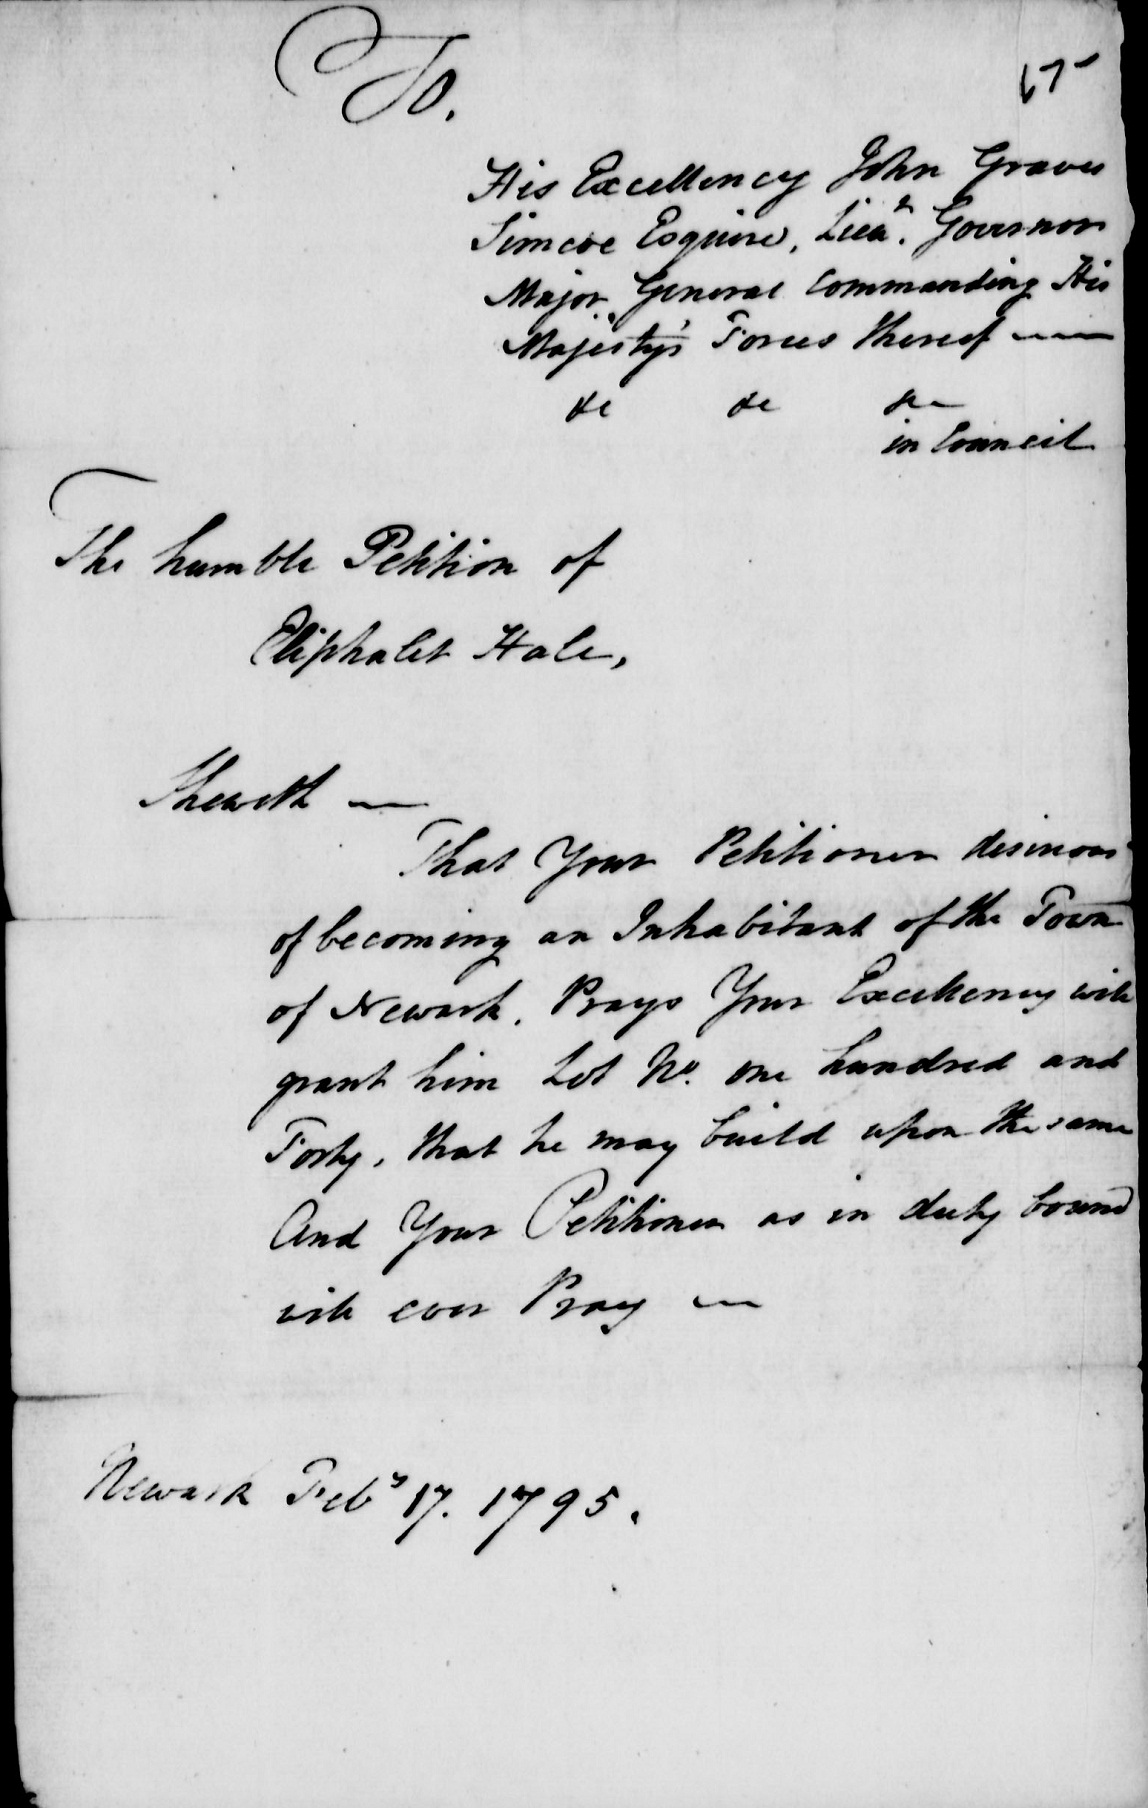 67
To,
His Excellency John Graves
Simcoe Esquire, Lieut. Governor
Major General Commanding His
Majesty's Forces thereof
&c &c &c
in Council
The humble Petition of
Eliphalet Hale,
Sheweth —
That Your Petitioner desirous
of becoming an Inhabitant of the Town
of Newark, Prays Your Excellency will
grant him Lot No. one hundred and
Forty, that he may build upon the same
And Your Petitioner as in duty bound
will ever Pray —
Newark Feby 17. 1795.